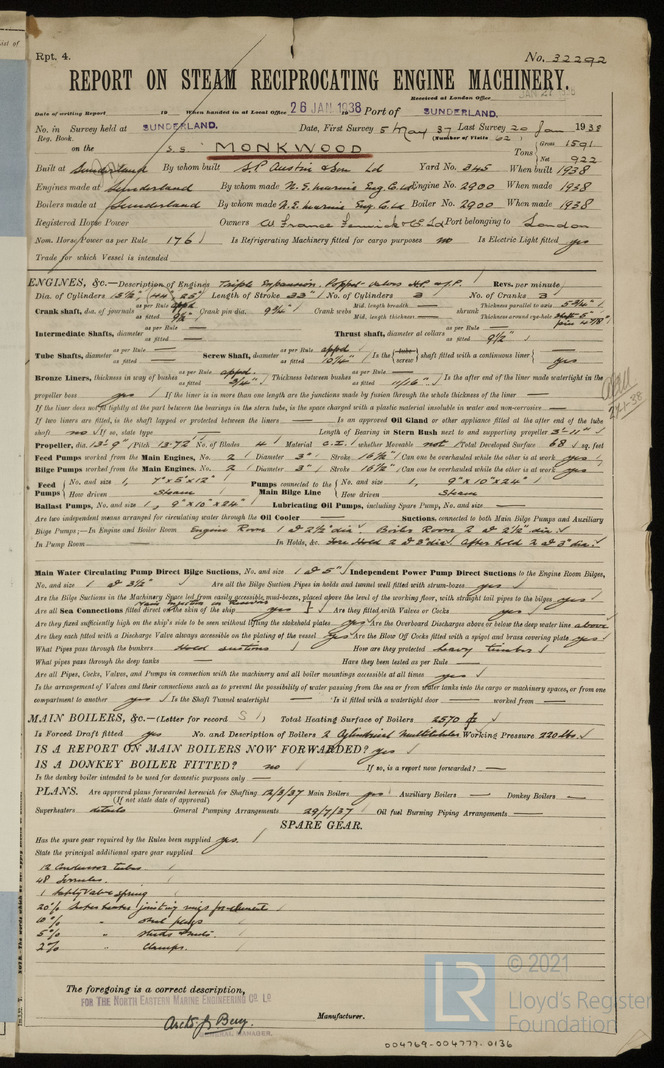 Rpt. 4. No. 32292
REPORT ON STEAM RECIPROCATING ENGINE MACHINERY.
Received at London Office
Date of writing Report 19 When handed in at Local Office 26 JAN 1938 Port of SUNDERLAND.
No. in Survey held at SUNDERLAND. Date, First Survey 5 May 37 Last Survey 20 Jan 1938
Reg. Book. (Number of Visits 62)
on the S.S. MONKWOOD Tons Gross 1591 Net 922
Built at Sunderland By whom built S.P. Austin & Son Ld Yard No. 345 When built 1938
Engines made at Sunderland By whom made N.E. Marine Eng. Co. Ld Engine No. 2900 When made 1938
Boilers made at Sunderland By whom made N.E. Marine Eng. Co. Ld Boiler No. 2900 When made 1938
Registered Horse Power Owners W. France Fenwick & Co Ld Port belonging to London
Nom. Horse Power as per Rule 176 Is Refrigerating Machinery fitted for cargo purposes no Is Electric Light fitted yes
Trade for which Vessel is intended
ENGINES, &c.—Description of Engines Triple Expansion. Poppet valves H.P. & I.P. Revs. per minute
Dia. of Cylinders Length of Stroke 33" No. of Cylinders 3 No. of Cranks 3
Crank shaft, dia. of journals as per Rule appd as fitted Crank pin dia. 9 3/4" Crank webs Mid. length breadth — Mid. length thickness — shrunk Thickness parallel to axis 5 3/4" Thickness around eye-hole
Intermediate Shafts, diameter as per Rule — as fitted — Thrust shaft, diameter at collars as per Rule — as fitted 9 1/2"
Tube Shafts, diameter as per Rule — as fitted — Screw Shaft, diameter as per Rule appd. as fitted 10 1/4" Is the tube screw shaft fitted with a continuous liner — yes
Bronze Liners, thickness in way of bushes as per Rule appd. as fitted 3/4" Thickness between bushes as per Rule — as fitted 11/16" Is the after end of the liner made watertight in the
propeller boss yes If the liner is in more than one length are the junctions made by fusion through the whole thickness of the liner —
If the liner does not fit tightly at the part between the bearings in the stern tube, is the space charged with a plastic material insoluble in water and non-corrosive —
If two liners are fitted, is the shaft lapped or protected between the liners — Is an approved Oil Gland or other appliance fitted at the after end of the tube
shaft no If so, state type — Length of Bearing in Stern Bush next to and supporting propeller 3'-11"
Propeller, dia. 13'-9" Pitch 13.72 No. of Blades 4 Material C.I. whether Moveable not Total Developed Surface 68 sq. feet
Feed Pumps worked from the Main Engines, No. 2 Diameter 3" Stroke 16 1/2" Can one be overhauled while the other is at work yes
Bilge Pumps worked from the Main Engines, No. 2 Diameter 3" Stroke 16 1/2" Can one be overhauled while the other is at work yes
Feed Pumps No. and size 1, 7"x5"x12" How driven Steam Pumps connected to the Main Bilge Line No. and size 1, 9"x10"x24" How driven Steam
Ballast Pumps, No. and size 1, 9"x10"x24" Lubricating Oil Pumps, including Spare Pump, No. and size —
Are two independent means arranged for circulating water through the Oil Cooler — Suctions, connected to both Main Bilge Pumps and Auxiliary
Bilge Pumps;—In Engine and Boiler Room Engine Room 1 @ 2 1/2" dia. Boiler Room 2 @ 2 1/2" dia.
In Pump Room — In Holds, &c. Fore Hold 2 @ 3" dia. After hold 2 @ 3" dia.
Main Water Circulating Pump Direct Bilge Suctions, No. and size 1 @ 5" Independent Power Pump Direct Suctions to the Engine Room Bilges,
No. and size 1 @ 3 1/2" Are all the Bilge Suction Pipes in holds and tunnel well fitted with strum-boxes yes
Are the Bilge Suctions in the Machinery Space led from easily accessible mud-boxes, placed above the level of the working floor, with straight tail pipes to the bilges yes
Are all Sea Connections fitted direct on the skin of the ship yes Are they fitted with Valves or Cocks yes
Are they fixed sufficiently high on the ship's side to be seen without lifting the stokehold plates yes Are the Overboard Discharges above or below the deep water line above
Are they each fitted with a Discharge Valve always accessible on the plating of the vessel yes Are the Blow Off Cocks fitted with a spigot and brass covering plate yes
What Pipes pass through the bunkers Hold suctions How are they protected heavy timber
What pipes pass through the deep tanks — Have they been tested as per Rule —
Are all Pipes, Cocks, Valves, and Pumps in connection with the machinery and all boiler mountings accessible at all times yes
Is the arrangement of Valves and their connections such as to prevent the possibility of water passing from the sea or from water tanks into the cargo or machinery spaces, or from one
compartment to another yes Is the Shaft Tunnel watertight — Is it fitted with a watertight door — worked from —
MAIN BOILERS, &c.—(Letter for record S) Total Heating Surface of Boilers 2570
Is Forced Draft fitted yes No. and Description of Boilers 2 Cylindrical Multitubular Working Pressure 220 lbs.
IS A REPORT ON MAIN BOILERS NOW FORWARDED? yes
IS A DONKEY BOILER FITTED? no If so, is a report now forwarded? —
Is the donkey boiler intended to be used for domestic purposes only —
PLANS. Are approved plans forwarded herewith for Shafting 12/3/37 Main Boilers yes Auxiliary Boilers — Donkey Boilers —
(If not state date of approval)
Superheaters details General Pumping Arrangements 29/7/37 Oil fuel Burning Piping Arrangements —
SPARE GEAR.
Has the spare gear required by the Rules been supplied yes.
State the principal additional spare gear supplied
12 Condenser tubes
48 ferrules.
1 Safety Valve spring
20% Superheater jointing rings for element
10% " steel plugs
5% " studs & nuts
2% " clamps.
The foregoing is a correct description,
FOR THE NORTH EASTERN MARINE ENGINEERING CO. LD
GENERAL MANAGER. Manufacturer.
LR © 2021
Lloyd's Register
Foundation
004769-004777-0136